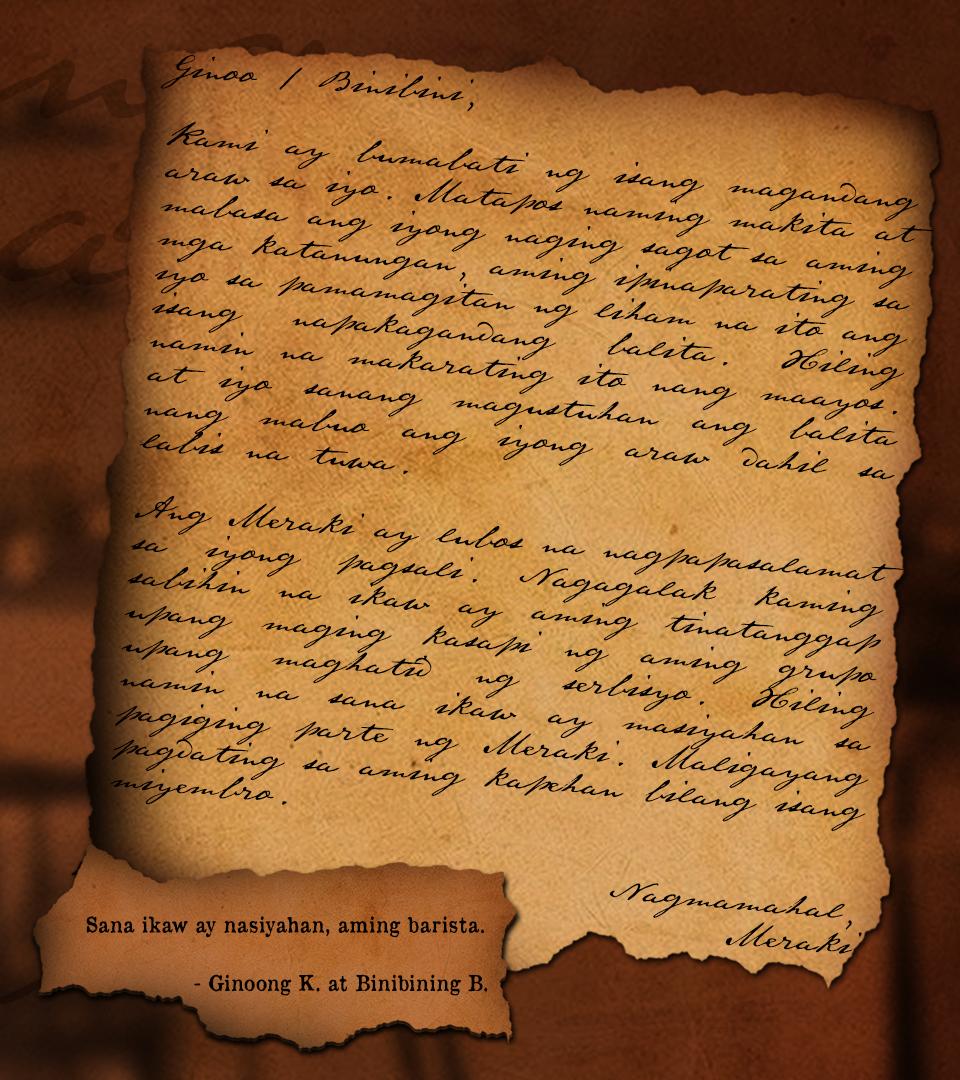 Ginoo / Binibini,
Kami ay bumabati ng isang magandang
araw sa iyo. Matapos naming makita at
mabasa ang iyong naging sagot sa aming
mga katanungan, aming ipinaparating sa
iyo sa pamamagitan ng liham na ito ang
isang napakagandang balita. Hiling
namin na makarating ito nang maayos.
at iyo sanang magustuhan ang balita
nang mabuo ang iyong araw dahil sa
labis na tuwa.
Ang Meraki ay lubos na nagpapasalamat
sa iyong pagsali. Nagagalak kaming
sabihin na ikaw ay aming tinatanggap
upang maging kasapi ng aming grupo
upang maghatid ng serbisyo. Hiling
namin na sana ikaw ay masiyahan sa
pagiging parte ng Meraki. Maligayang
pagdating sa aming kapehan bilang isang
miyembro.
Nagmamahal,
Meraki
Sana ikaw ay nasiyahan, aming barista.
- Ginoong K. at Binibining B.